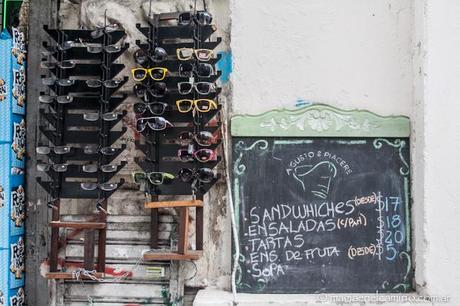 A GUSTO & PIACERE
SANDWHICHES (DESDE) $17
ENSALADAS C/PAN $18
TARTAS $20
ENS. DE FRUTA (DESDE) $5
SOPA
© magiaenelcamino.com